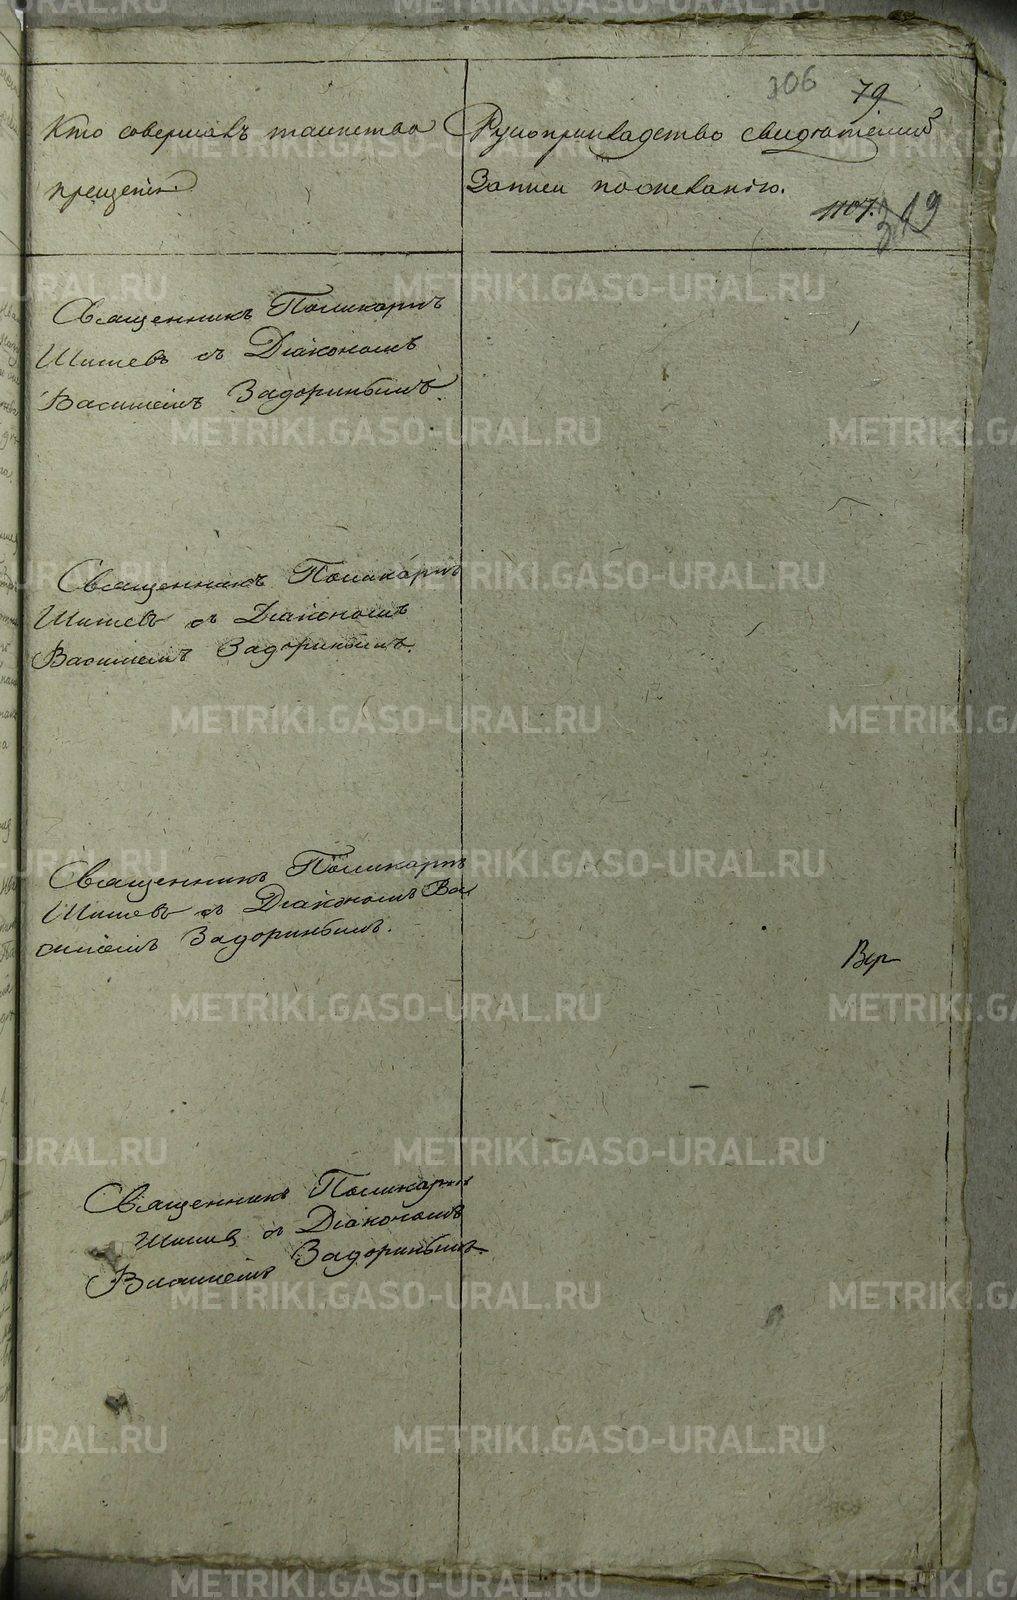 306
79
Кто совершалъ таинство
крещенія.
Рукоприкладство свидѣтелей
Записи по желанію.
1107.
319
Священникъ Поликарпъ
Шишевъ съ Діакономъ
Василіемъ Задоринымъ.
Священникъ Поликарпъ
Шишевъ съ Діакономъ
Василіемъ Задоринымъ.
Священникъ Поликарпъ
Шишевъ съ Діакономъ Ва
силіемъ Задоринымъ.
Священникъ Поликарпъ
Шишевъ съ Діакономъ
Василіемъ Задоринымъ.
METRIKI.GASO-URAL.RU